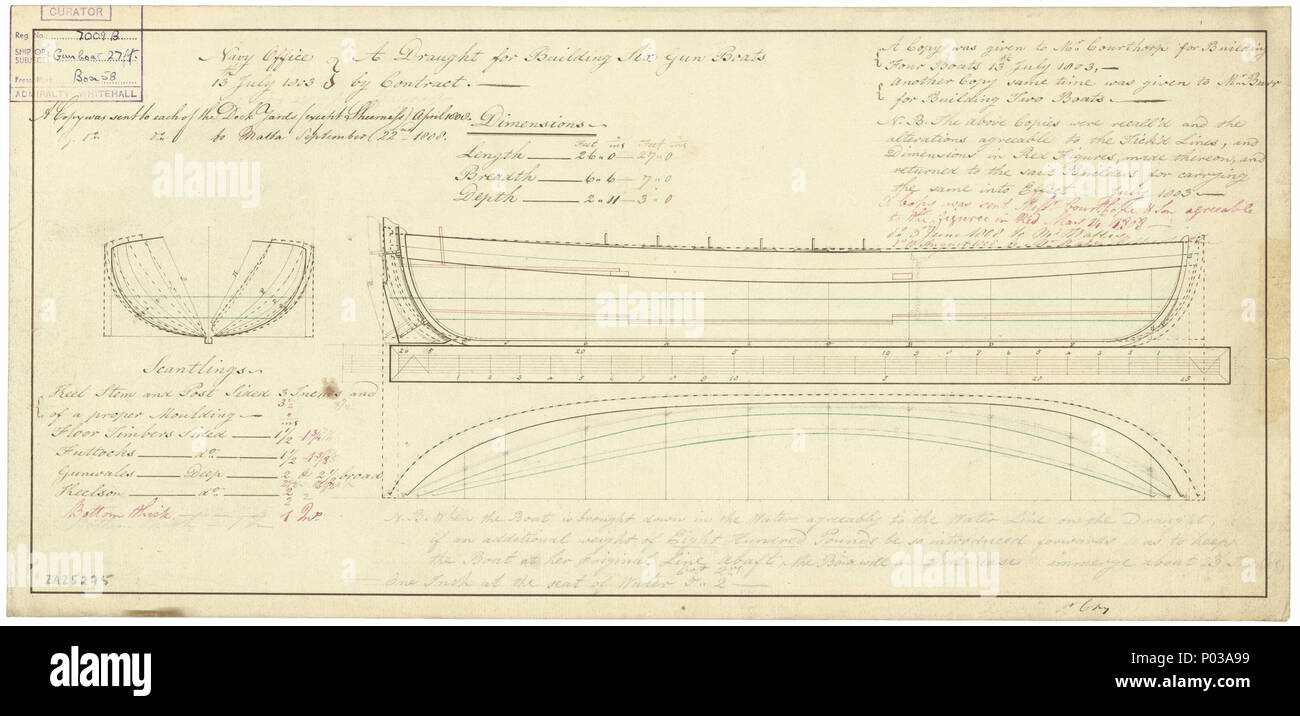 CURATOR
Reg. No. 7009.B
SHIP OR SUBJECT Gunboat 27ft.
Box 58
ADMIRALTY WHITEHALL
Navy Office
13th July 1803
A Draught for Building Six Gun Boats
by Contract.
A Copy was given to Mr. Courthorp for Building
Four Boats 13th July 1803,
another Copy same time was given to Mr. Burr
for Building Two Boats.
A Copy was sent to each of the Dock Yards (except Sheerness) April 1808.
do. do. to Malta September 22nd 1808.
N.B. The above Copies were recall'd and the
alterations agreeable to the Tick'd Lines, and
Dimensions in Red Figures, made thereon, and
returned to the said Builders for carrying
the same into Effect July 1803.
A Copy was sent Courthope & Son agreeable
to the figures in Red 1808
Dimensions
Feet ins Feet ins
Length 26 " 0 27 " 0
Breadth 6 " 6 7 " 0
Depth 2 " 11 3 " 0
Scantlings
Keel Stem and Post Sided 3 Inches and
of a proper Moulding
Floor Timbers Sided 1 1/2 1 3/4
Futtocks do. 1 1/2
Gunwales Deep 2 & 2 1/2 broad
Keelson do. 2
Bottom thick 1 In.
N.B. When the Boat is brought down in the Water agreeably to the Water Line on the Draught,
if an additional weight of Eight Hundred Pounds be so introduced forwards as to keep
the Boat at her original Line abaft, the Bow will immerge about 3
One Inch at the seat of Water
ZAZ5275
alamy
Image ID: P03A99
www.alamy.com